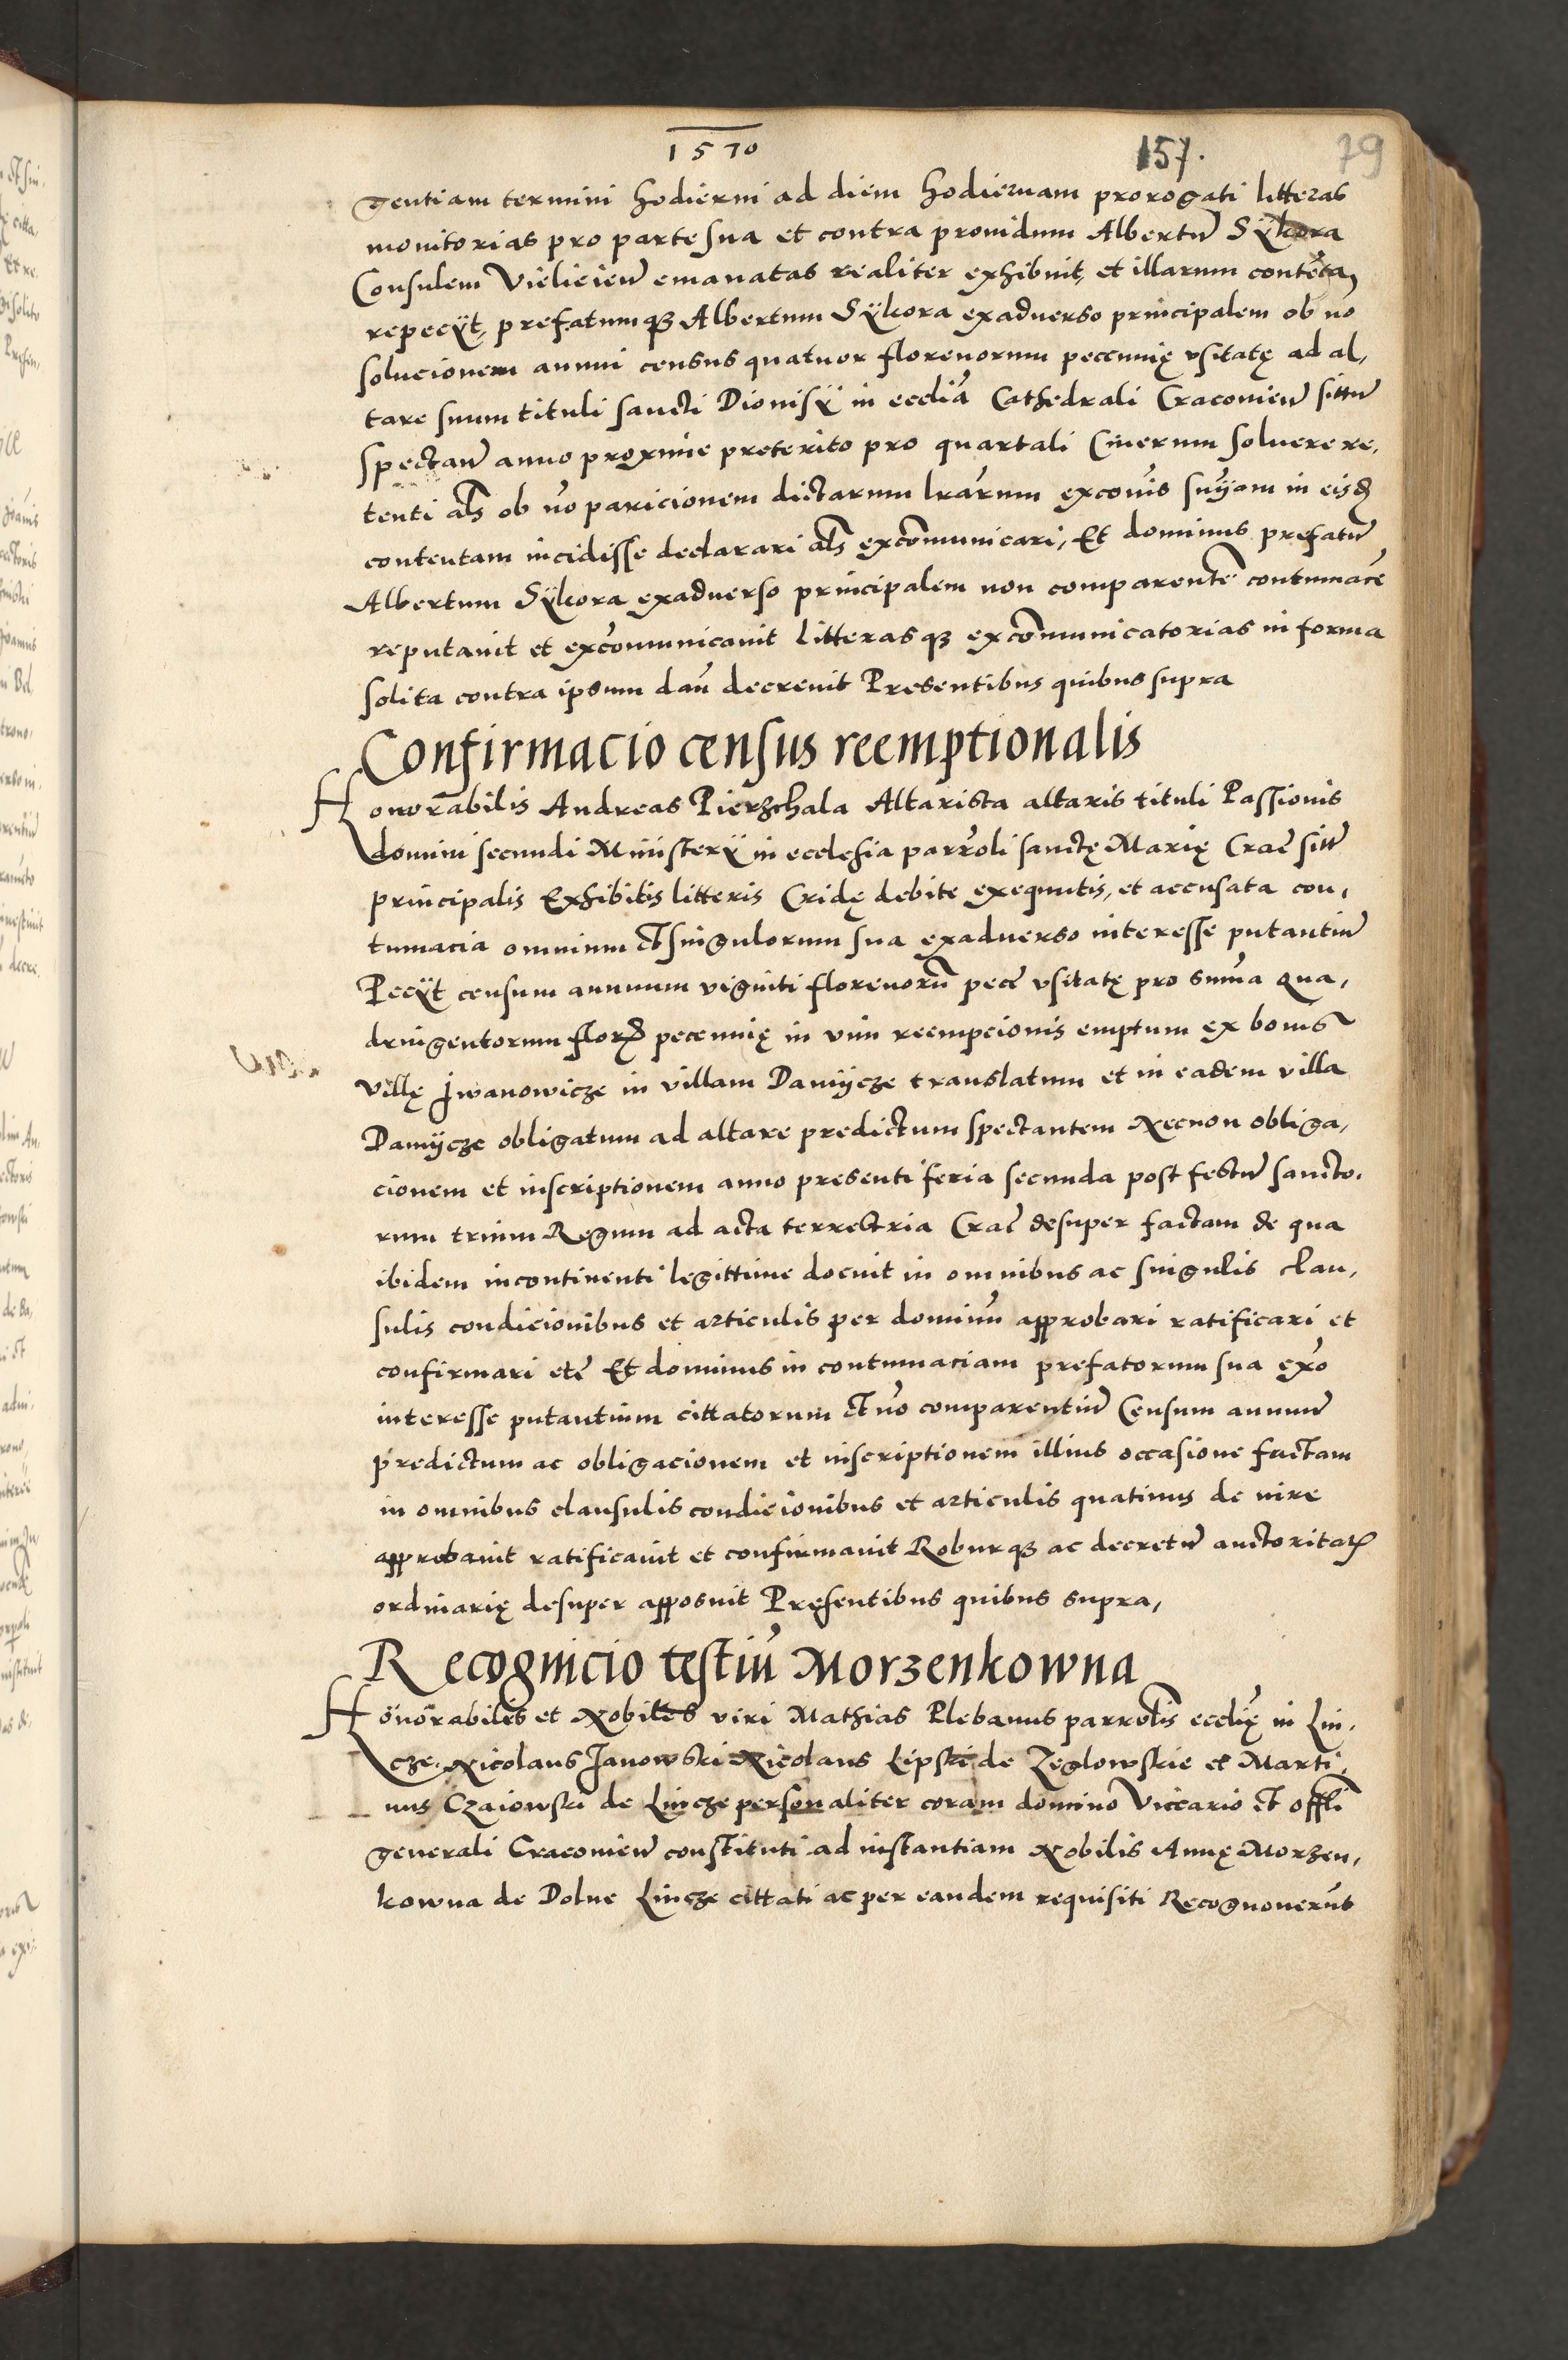 1570
157.
79
gentiam termini hodierni ad diem hodiernam prorogati litteras
monitorias pro parte sua et contra prouidum Albertū Sÿkora
Consulem Vielicien̄ emanatas realiter exhibuit, et illarum contēta
repecÿt, prefatumqȝ Albertum Sÿkora exaduerso principalem ob nō
solucionem annui census quatuor florenorum pecunię vsitatę ad al,
tare suum tituli sancti Dionisÿ in eccliā Cathedrali Cracouien̄ sittū
spectan̄ anno proxime preterito pro quartali Cinerum soluere re,
tenti als̄ ob nō paricionem dictarum lrārum excōis sn̄iam in eisd
contentam incidisse declarari als̄ excōmunicari, Et dominus prefatū
Albertum Sÿkora exaduerso principalem non comparentē contumacē
reputauit et excōmunicauit litterasqȝ excōmunicatorias in forma
solita contra ipsum dan̄ decreuit Presentibus quibus supra
Confirmacio census reemptionalis
Honorabilis Andreas Pierzchala Altarista altaris tituli Passionis
domini secundi Ministerÿ in ecclesia parrōli sanctę Marię Crac̄ sitt̄
principalis Exhibitis litteris Cridę debite exequutis, et accusata con,
tumacia omnium et singulorum sua exaduerso interesse putantiū
Pecÿt censum annuum viginti florenorū pecc̄ vsitatę pro sum̄a qua,
dringentorum flor pecunię in vim reempcionis emptum ex bonis
villę Jwanowicze in villam Damÿcze translatum et in eadem villa
Damÿcze obligatum ad altare predictum spectantem Necnon obliga,
cionem et inscriptionem anno presenti feria secunda post festū sancto,
rum trium Regum ad acta terrestria Crac̄ desuper factam de qua
ibidem incontinenti legittime docuit in omnibus ac singulis clau,
sulis condicionibus et articulis per dominū approbari ratificari et
confirmari etc̄ Et dominus in contumaciam prefatorum sua exō
interesse putantium cittatorum et nō comparentiū Censum annuū
predictum ac obligacionem et inscriptionem illius occasione factam
in omnibus clausulis condicionibus et articulis quatinus de iure
approbauit ratificauit et confirmauit Roburqȝ ac decretū auctoritat
ordinarię desuper apposuit Pręsentibus quibus supra,
Recognicio testiū Morzenkowna
Honorabilis et Nobiles viri Mathias Plebanus parrolis̄ ecclię in Lin,
cze. Nicolaus Janowski Nicolaus Lipski de Zeglowskie et Marti,
nus Czaiowski de Lincze personaliter coram domino Viccario et offli
generali Cracouien̄ constituti ad instantiam Nobilis Annę Morzen,
kowna de Dolne Lincze cittati ac per eandem requisiti Recognouerūt